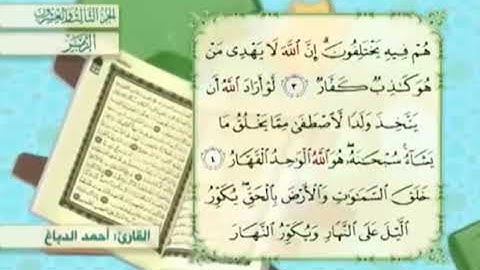 الجزء الثالث والعشرون
الزمر
هُمْ فِيهِ يَخْتَلِفُونَ ۗ إِنَّ اللَّهَ لَا يَهْدِي مَنْ
هُوَ كَاذِبٌ كَفَّارٌ ﴿٣﴾ لَوْ أَرَادَ اللَّهُ أَنْ
يَتَّخِذَ وَلَدًا لَاصْطَفَىٰ مِمَّا يَخْلُقُ مَا
يَشَاءُ ۚ سُبْحَانَهُ ۖ هُوَ اللَّهُ الْوَاحِدُ الْقَهَّارُ ﴿٤﴾
خَلَقَ السَّمَاوَاتِ وَالْأَرْضَ بِالْحَقِّ ۖ يُكَوِّرُ
اللَّيْلَ عَلَى النَّهَارِ وَيُكَوِّرُ النَّهَارَ
القارئ: أحمد الدباغ